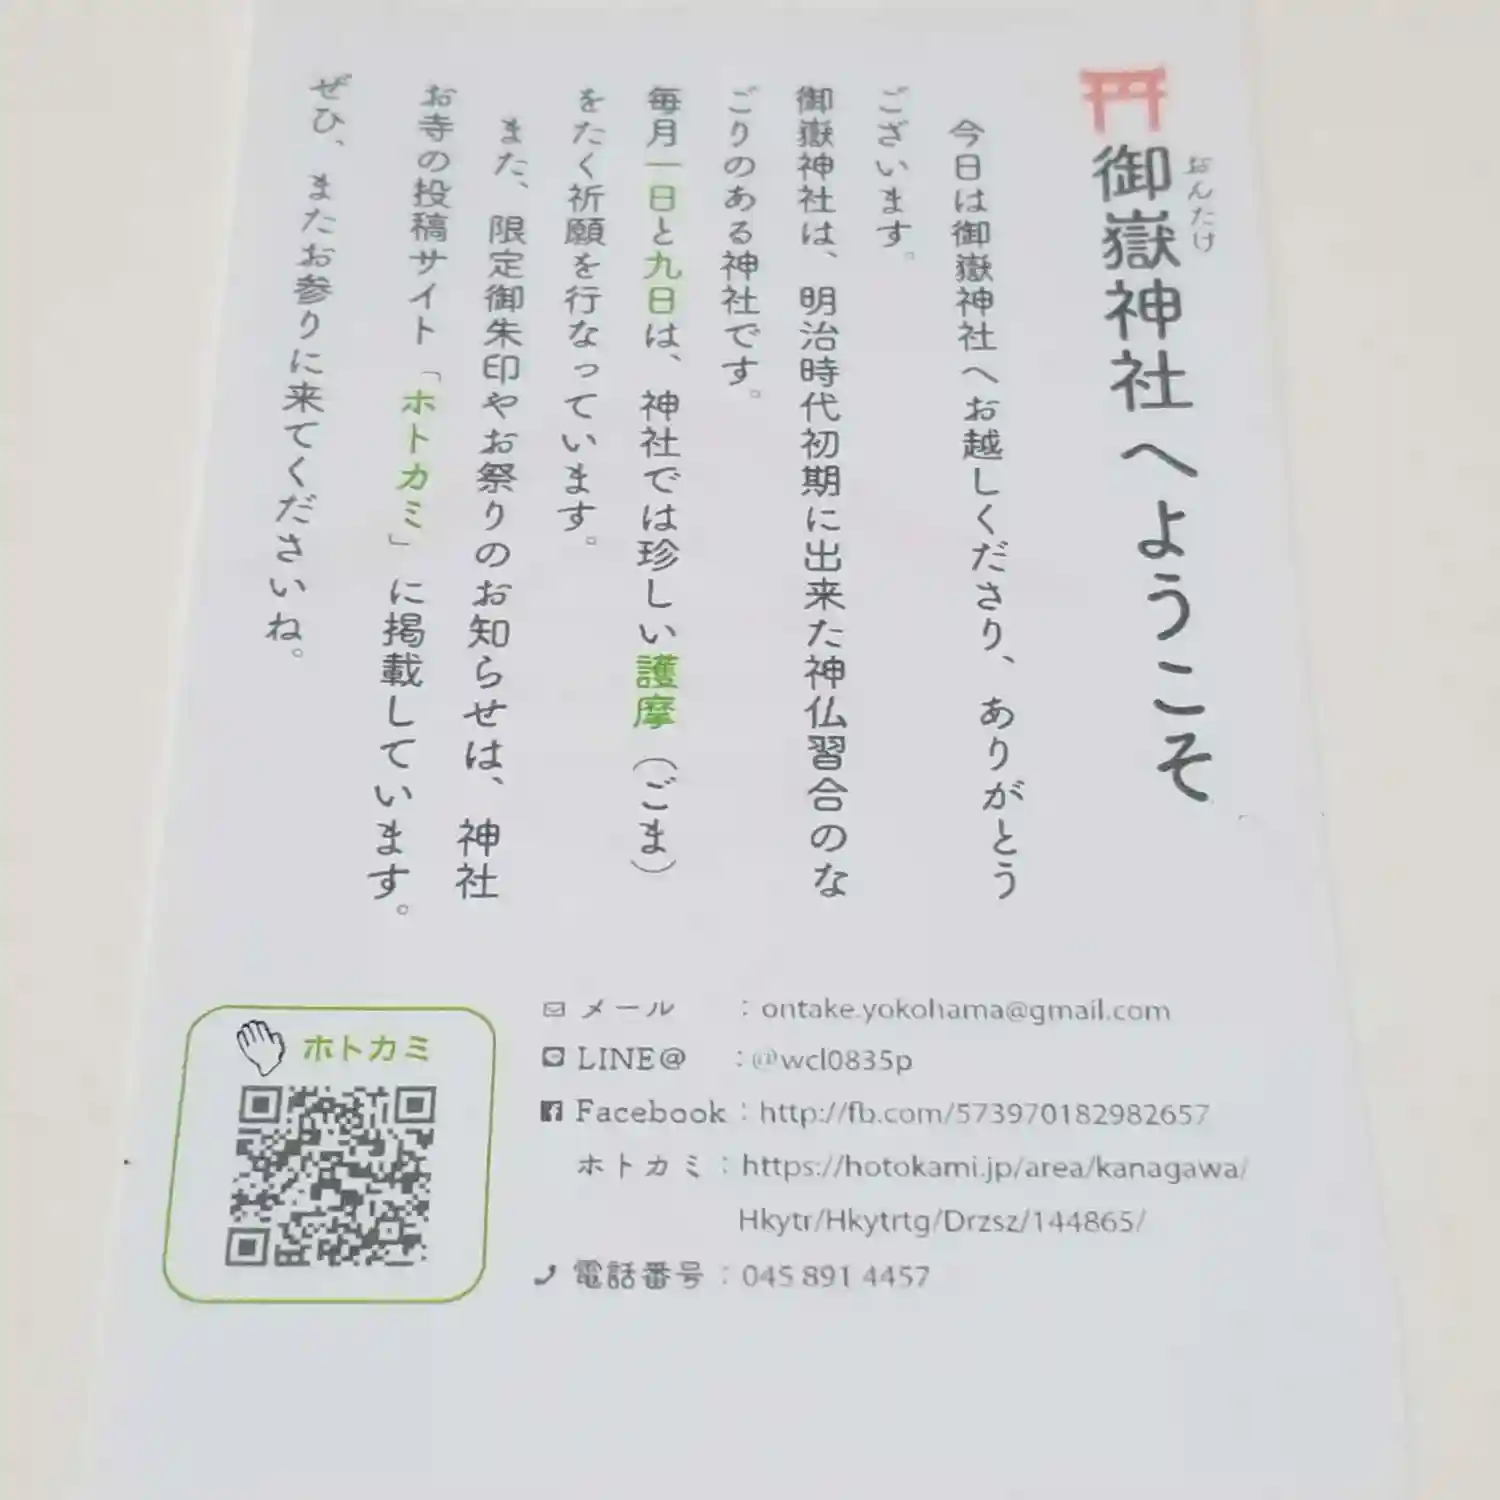 御嶽神社へようこそ
おんたけ
今日は御嶽神社へお越しくださり、ありがとう
ございます。
御嶽神社は、明治時代初期に出来た神仏習合のな
ごりのある神社です。
毎月一日と九日は、神社では珍しい護摩（ごま）
をたく祈願を行なっています。
また、限定御朱印やお祭りのお知らせは、神社
お寺の投稿サイト「ホトカミ」に掲載しています。
ぜひ、またお参りに来てくださいね。
ホトカミ
メール ：ontake.yokohama@gmail.com
LINE@ ：@wcl0835p
Facebook：http://fb.com/573970182982657
ホトカミ：https://hotokami.jp/area/kanagawa/
Hkytr/Hkytrtg/Drzsz/144865/
電話番号：045 891 4457